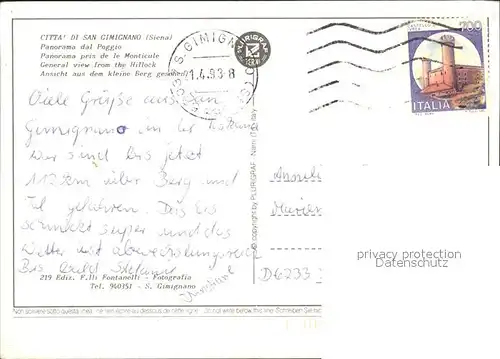 CITTA' DI SAN GIMIGNANO (Siena)
Panorama dal Poggio
Panorama pris de le Monticule
General view from the Hillock
Ansicht aus dem kleine Berg gesehen
S. GIMIGNANO
21.4.93-8
PLURIGRAF
TERNI
700
ITALIA
Viele Grüße aus San
Gimignano in der Toskana
Wir sind bis jetzt
112 km über Berg und
Tal gefahren. Das Eis
schmeckt super und das
Wetter ist abwechslungsreich
Bis bald Stefanie
D6233
© copyright by PLURIGRAF - Narni (Terni)
privacy protection
www.akpool.de
219 Ediz. F.lli Fontanelli - Fotografia
Tel. 940351 - S. Gimignano
Non scrivere sotto questa linea / ne rien écrire au dessous de cette ligne / Do not write below this line / Schreiben Sie